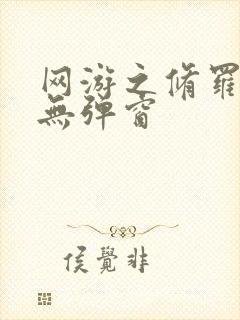 网游之脩羅
無弹窗
侯覺非